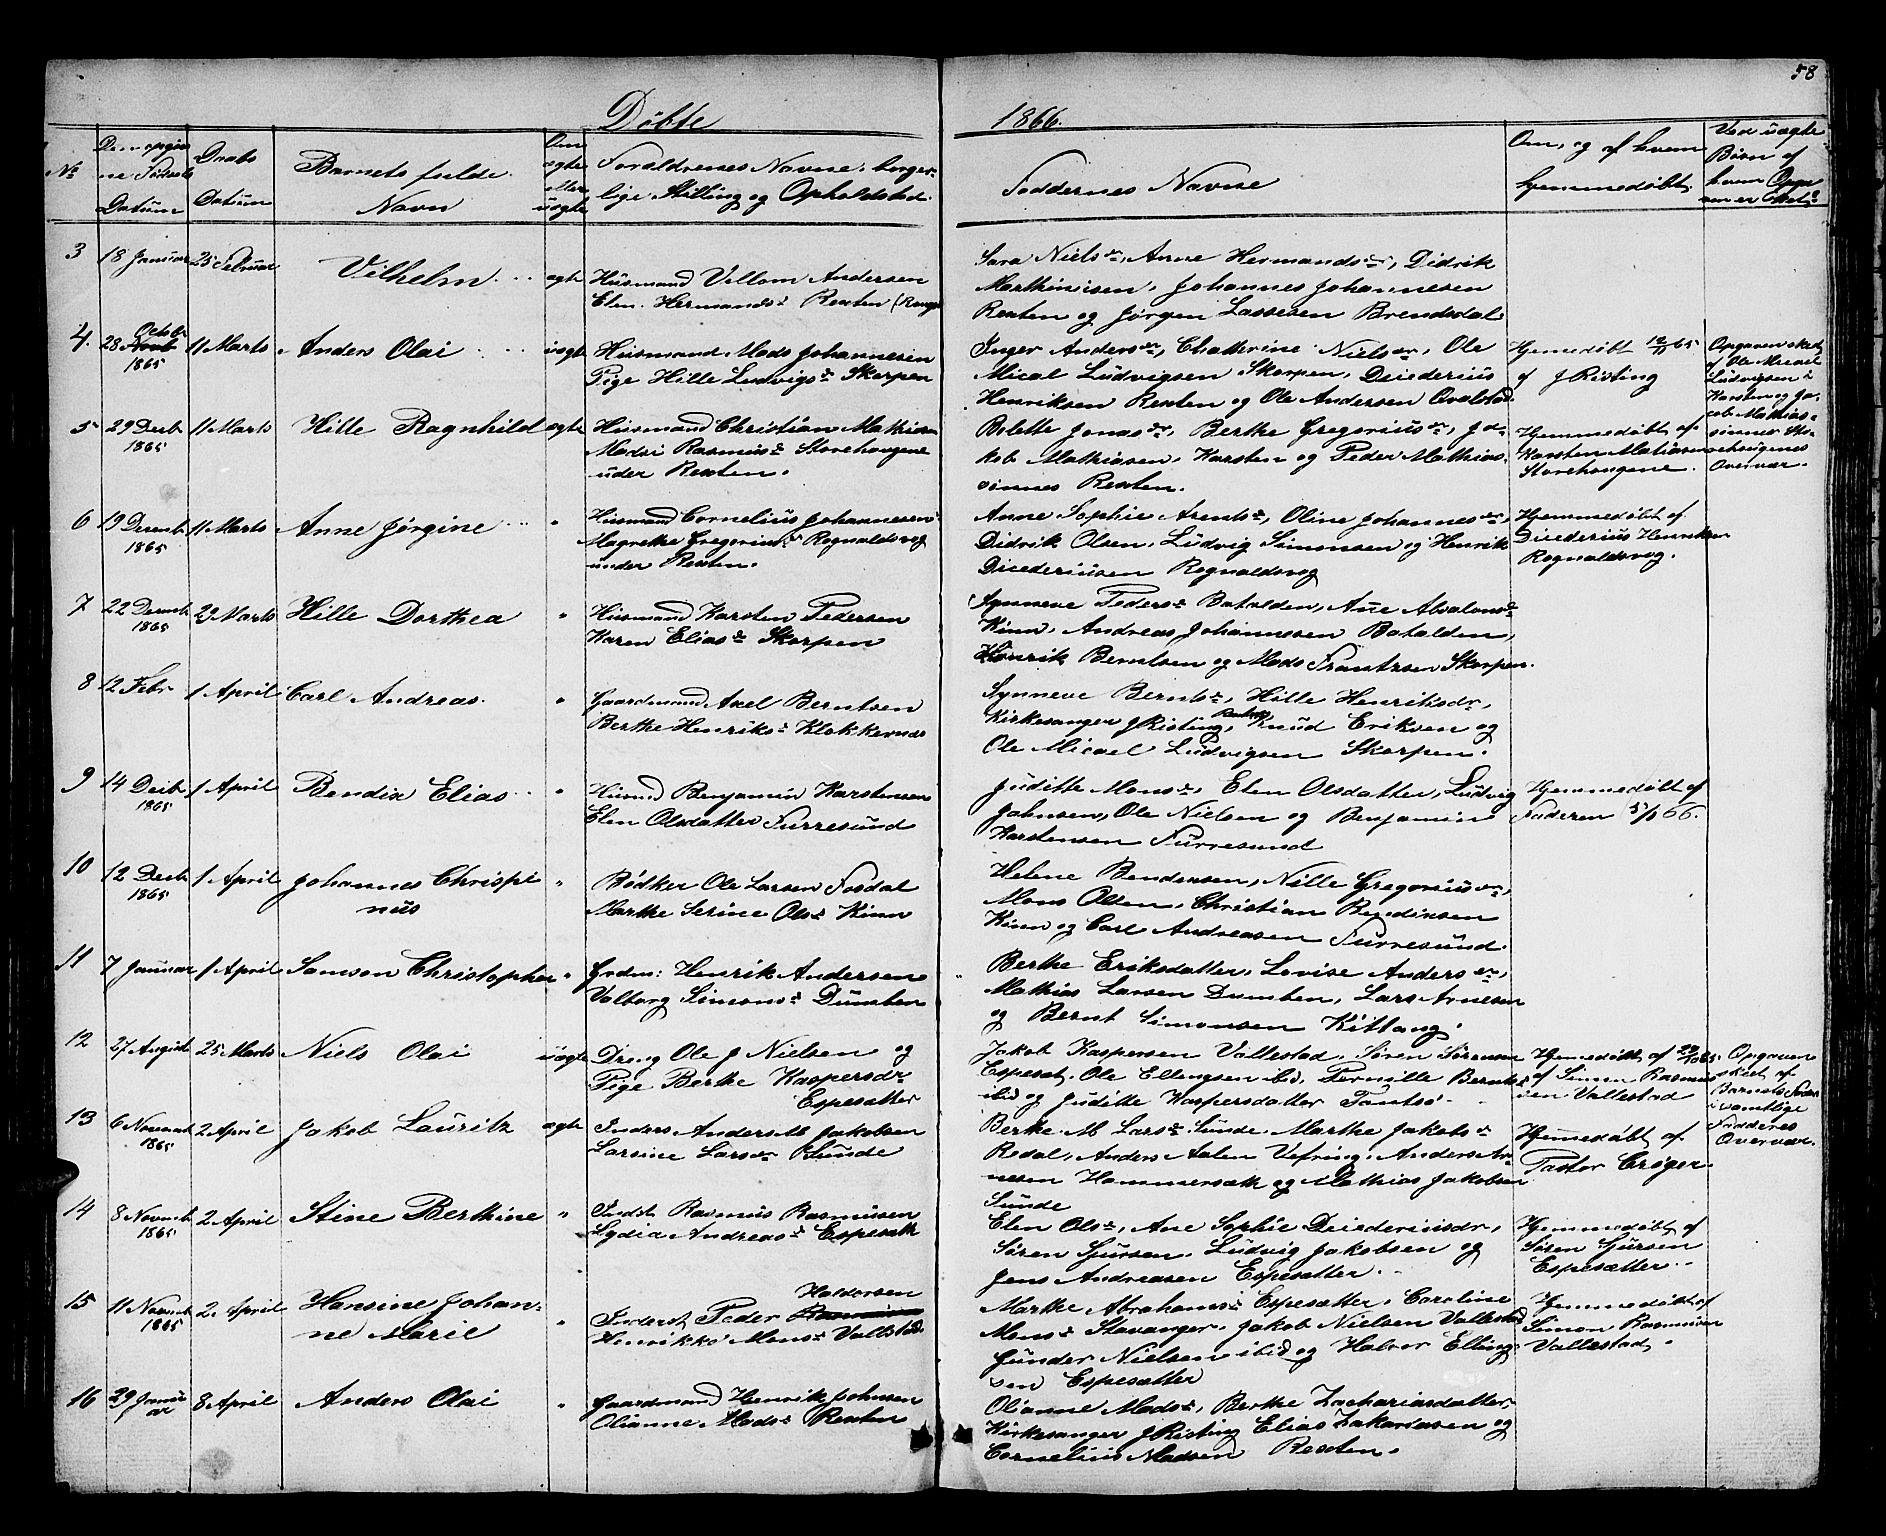 58
Döbte
1866.
No
Den opgivne Födsels Datum
Daabs Datum
Barnets fulde Navn
Om ægte eller uægte
Forældrenes Navne, borgerlige Stilling og Opholdsted.
Faddernes Navne
Om, og af hvem hjemmedöbt.
Ved uægte Börn af hvem
3
18 Januar
25 Februar
Vilhelm
ægte
Husmand Villom Andersen
Elen Hermands Rexten
Sara Nielsdr, Anne Hermandsdr, Didrik
Marthinisen, Johannes Johannesen
Rexten og Jörgen Lassesen Brendsdal
4.
28 Octobr
1865
11 Marts
Anders Olai
uægte
Husmand Mads Johannesen
Pige Hille Ludvigsdr Skorpen
Inger Andersdr, Chatterine Nielsdr, Ole
Mical Ludvigsen Skorpen, Diederius
Henriksen Rexten og Ole Andersen Qvalstad
Hjemmedöbt 12/11 65
af J Risting
Opgaven skedt
af Ole Micael
Ludvigsen
Karsten og Ja-
cob Mathias-
sönner
Overvær.
5
29 Decbr
1865
11 Marts
Hille Ragnhild
ægte
Husmand Christian Mathiesen
Madsi Rasmusdr Storehougene
under Rexten.
Bolette Jonasdr, Berthe Gregoriusdr, Ja-
kob Mathiasen, Karsten og Peder Mathias-
sönnes Rexten.
Hjemmedöbt af
Karsten Matiasen
Storehougene.
6
19 Decembr
1865
11 Marts
Anne Jörgine
"
Husmand Cornelius Johannesen
Magrethe Gregoriusdr Rognaldsvog
under Rexten.
Anne Sophie Arentsdr, Oline Johannesdr,
Didrik Olsen, Ludvig Simonsen og Henrik
Diederiusen Rognaldsvog
Hjemmedöbt af
Diederius Henriksen
Rognaldsvog.
7
22 Decembr
1865
29 Marts
Hille Dorthea
"
Husmand Karsten Pedersen
Karen Eliasdr Skorpen
Synneve Pedersdr Batalden, Ane Absalonsdr
Kinn, Andreas Johannessen Batalden,
Henrik Berntsen og Mads Frantzsen Skorpen.
8
12 Febr
1 April
Carl Andreas.
"
Gaardmand Axel Berntsen
Berthe Henriksdr Klokkernæs
Synneve Berntsdr, Hille Henriksdr,
Kirkesanger J Risting, Knud Eriksen og
Ole Micael Ludvigsen Skorpen.
9
14 Decbr
1865
1 April
Bendix Elias
"
Husmd Benjamin Karstensen
Elen Olsdatter Furresund
Juditte Monsdr, Elen Olsdatter, Ludvig
Johnsen, Ole Nielsen og Benjamin
Karstensen Furresund
Hjemmedöbt af
Faderen 5/1 66.
10
12 Decbr
1865
1 April
Johannes Chrispi
nus
"
Bödker Ole Larsen Fosdal
Marthe Serine Olsdr Kinn
Helene Bendixsen, Nille Gregoriusdr,
Mons Olsen, Christian Bendixsen
Kinn og Carl Andreasen Furresund.
11
7 Januar
1 April
Samson Christopher
"
Grdm: Henrik Andersen
Valborg Simonsdr Dumben
Berthe Eriksdatter, Lovise Andersdr,
Mathias Larsen Dumben, Lars Arnesen
og Bernt Simonsen Kittang.
12
27 August
25 Marts
Niels Olai
uægte
Dreng Ole J Nielsen og
Pige Berthe Kaspersdr
Espesætter
Jakob Kaspersen Vallestad, Sören Sörensen
Espeset, Ole Ellengsen ibid, Pernille Berntsdr
ibid og Juditte Kaspersdatter Tantsö.
Hjemmedöbt
af Simon Rasmus
sen Vallestad
Opgaven
skedt af
Barnets Fader
i samtlige
Fadderes
Overvær.
13
6 Novembr
1865
2 April
Jakob Lauritz
ægte
Inders Anders M Jakobsen
Larsine Larsdr Sunde
Berthe M Larsdr Sunde, Marthe Jakobsdr
Redal, Anders Aalen Vefring, Anders Ar-
nesen Hammersæth og Mathias Jakobsen
Sunde
Hjemedöbt af
Pastor Cröger.
14
8 Novembr
1865
2 April
Stine Berthine
"
Indst Rasmus Rasmusen
Lydia Andreasdr Espesæth
Elen Olsdr, Ane Sophie Diederiusdr,
Sören Sjursen, Ludvig Jakobsen og
Jens Andreasen Espesætter.
Hjemmedöbt af
Sören Sjursen
Espesætter.
15
11 Novembr
1865
2 April
Hansine Johan-
ne Marie
"
Haldorsen
Inderst Peder Rasmusen
Henrikke Monsdr Vallestad
Marthe Abrahamsdr Espesætter, Caroline
Monsdr Stavanger, Jakob Nielsen Vallestad
Gunder Nielsen ibid og Halvor Elling-
sen Espesætter
Hjemmedöbt af
Simon Rasmusen
Vallestad.
16
29 Janu
ar
8 April
Anders Olai
"
Gaardmand Henrik Johnsen
Olianne Madsdr Rexten
Olianne Madsdr, Berthe Zachariasdatter,
Kirkesanger J Risting, Elias Zakariasen og
Cornelius Madsen Rexten.